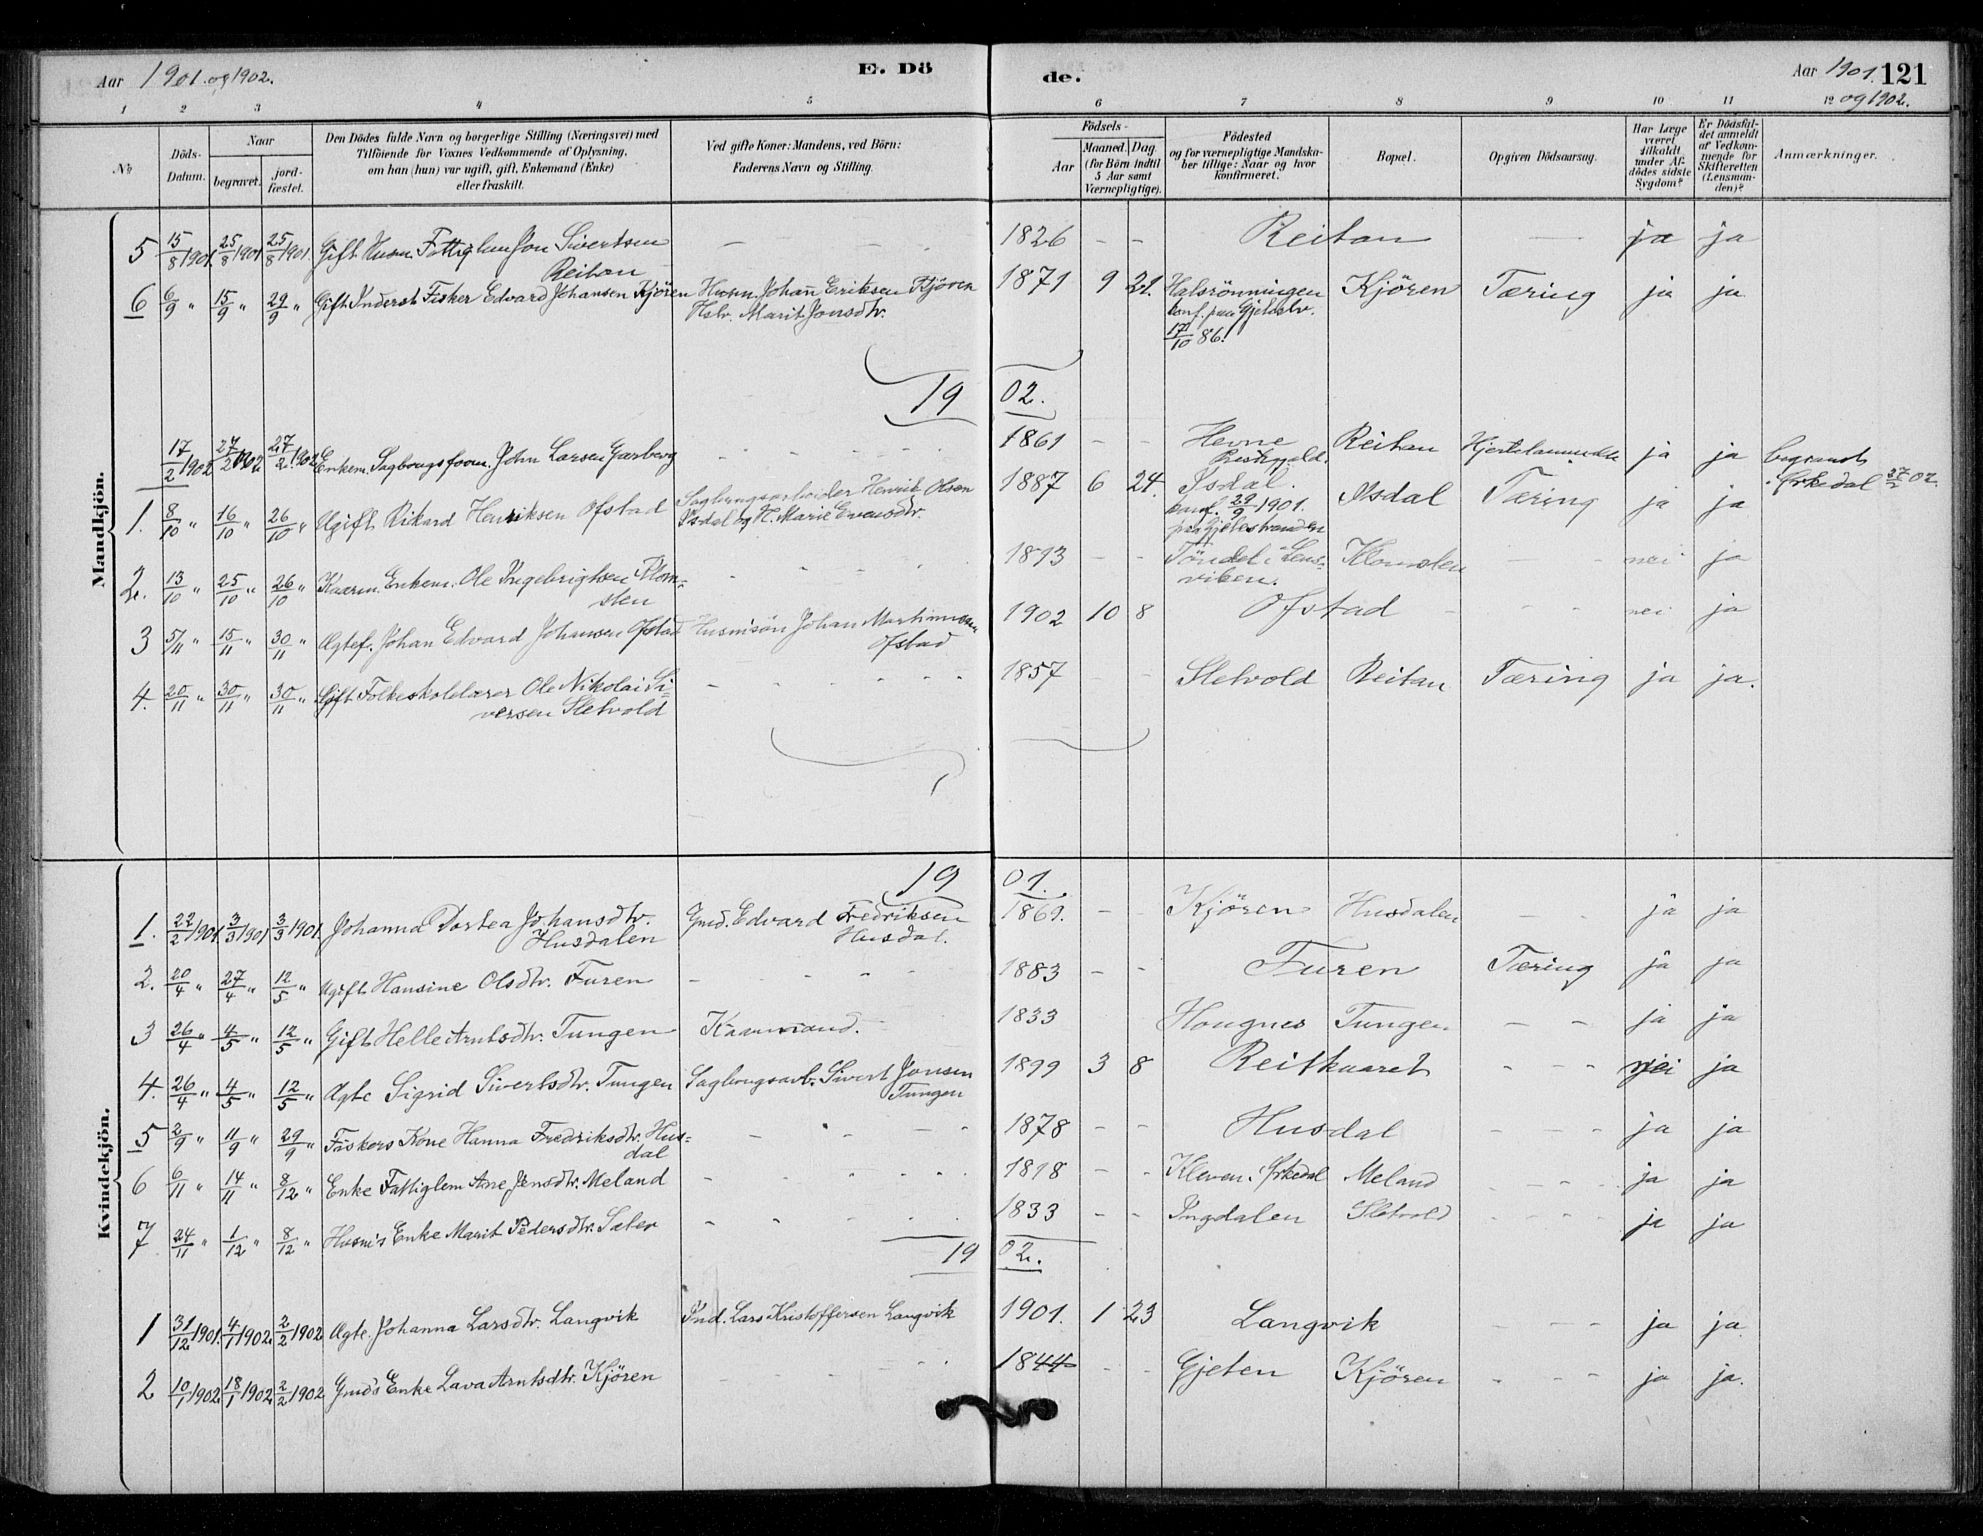 Aar 1901. og 1902.
E. Dö
de.
Aar 1901. 121
og 1902.
1 2 3 4 5 6 7 8 9 10 11 12
No
Döds-Datum.
Naar
begravet.
jord-fæstet.
Den Dödes fulde Navn og borgerlige Stilling (Næringsvei) med
Tilföiende for Voxnes Vedkommende af Oplysning,
om han (hun) var ugift, gift, Enkemand (Enke)
eller fraskilt.
Ved gifte Koner: Mandens, ved Börn:
Faderens Navn og Stilling.
Födsels-
Aar
Maaned. Dag.
(for Börn indtil
5 Aar samt
Værnepligtige).
Födested
og for værnepligtige Mandska-
ber tillige: Naar og hvor
konfirmeret.
Bopæl.
Opgiven Dödsaarsag.
Har Læge
været
tilkaldt
under Af-
dödes sidste
Sygdom?
Er Dödsfal-
det anmeldt
af Vedkom-
mende for
Skifteretten
(Lensman-
den)?
Anmærkninger.
Mandkjön.
5 15/8 1901. 25/8 1901 25/8 1901. Gift Husm. Fattiglem Jon Sivertsen — — — — 1826 — — Reitan — ja ja
Reitan
6 6/9 " 15/9 " 29/9 " Gift Inderst Fisker Edvard Johansen Kjören Husm. Johan Eriksen Kjören 1871 9 21. Halsrönningen Kjören Tæring ja ja
Hstr. Marit Jonsdtr. konf. paa Gjetastr.
17/10 86.
19 02.
17/2 1902 27/2 1902 27/2 1902 Enkem. Sagbrugsform. John Larsen Garberg - - - - 1861 - - Hevne Reitan Hjertelammelse ja ja begravet
Orkedal 27/2 02.
1. 8/10 " 16/10 " 26/10 " Ugift Rikard Henriksen Ofstad Sagbrugsarbeider Henrik Olsen 1887 6 24. Isdal. Isdal Tæring ja ja
Isdal og H. Marie Evensdtr. konf. 29/9 1901.
paa Gjetestranden
2. 13/10 " 25/10 " 26/10 Kaarm. Enkem. Ole Ingebrigtsen Klom- - - - - 1813 - - Töndel i Lens- Klomsten - - nei ja
sten viken.
3 5/11 " 15/11 " 30/11 " Ægtef. Johan Edvard Johansen Ofstad Husmsön Johan Martinusen 1902 10 8 Ofstad - - - nei ja
Ofstad
4. 20/11 " 30/11 " 30/11 " Gift Folkeskolelærer Ole Nikolai Si- - - - - 1857 - - Sletvold Reitan Tæring ja ja.
versen Sletvold
Kvindekjön.
19 01.
1. 22/2 1901. 3/3 1901 3/3 1901. Johanna Dortea Johansdtr. Gmd. Edvard Fredriksen 1869. - Kjören Husdalen - - ja ja
Husdalen Husdal.
2. 20/4 " 27/4 " 12/5 " Ugift Hansine Olsdtr. Furen - - - - 1883 - - Furen Tæring ja ja
3 26/4 " 4/5 " 12/5 " Gift Helle Arntsdtr. Tungen Kaarmand. 1833 Hougnes Tungen - - ja ja
4. 26/4 " 4/5 " 12/5 " Ægte Sigrid Sivertsdtr. Tungen Sagbrugsarb. Sivert Jonsen 1899 3 8 Reitkaaret - - - nei ja
Tungen
5 2/9 " 11/9 " 29/9 " Fiskers Kone Hanna Fredriksdtr. Hus- - - - - 1878 - - Husdal - - - ja ja
dal
6 6/11 " 14/11 " 8/12 " Enke Fattiglem Ane Jensdtr. Meland - - - - 1818 - - Kleven i Orkedal Meland - - - - ja ja
7 24/11 " 1/12 " 8/12 " Husm's Enke Marit Pedersdtr. Sæter - - - - 1833 - - Ingdalen Sletvold - - - - ja ja
19 02.
1 31/12 1901. 4/1 1902. 2/2 1902 Ægte. Johanna Larsdtr. Langvik Ind. Lars Kristoffersen Langvik 1901. 1 23 Langvik - - - ja ja.
2 10/1 1902. 18/1 1902 2/2 1902 Gmd's Enke Lava Arntsdtr. Kjören - - - - 1844 - - Gjeten Kjören - - - ja ja.